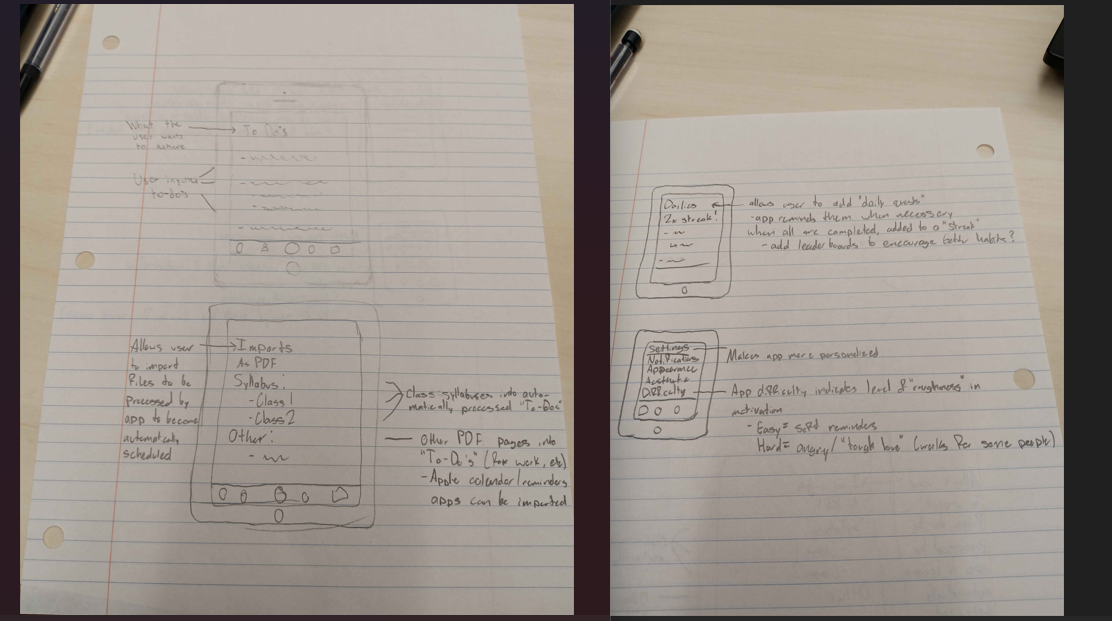 What the
user wants
to achieve
To Do's
User inputed
to-do's
Allows user
to import
files to be
processed by
app to become
automatically
scheduled
Imports
As PDF
Syllabus:
- Class 1
- Class 2
Other:
Class syllabuses into auto-
matically processed "To-Dos"
Other PDF pages into
"To-Do's" (for work, etc)
- Apple calendar/reminders
apps can be imported
Dailies
2x streak!
allows user to add "daily quests"
- app reminds them when necessary
when all are completed, added to a "streak"
- add leaderboards to encourage better habits?
Settings
Notifications
Appearance
Difficulty
Makes app more personalized
App difficulty indicates level of "roughness" in
motivation
- Easy = soft reminders
Hard = angry/"tough love" (works for some people)